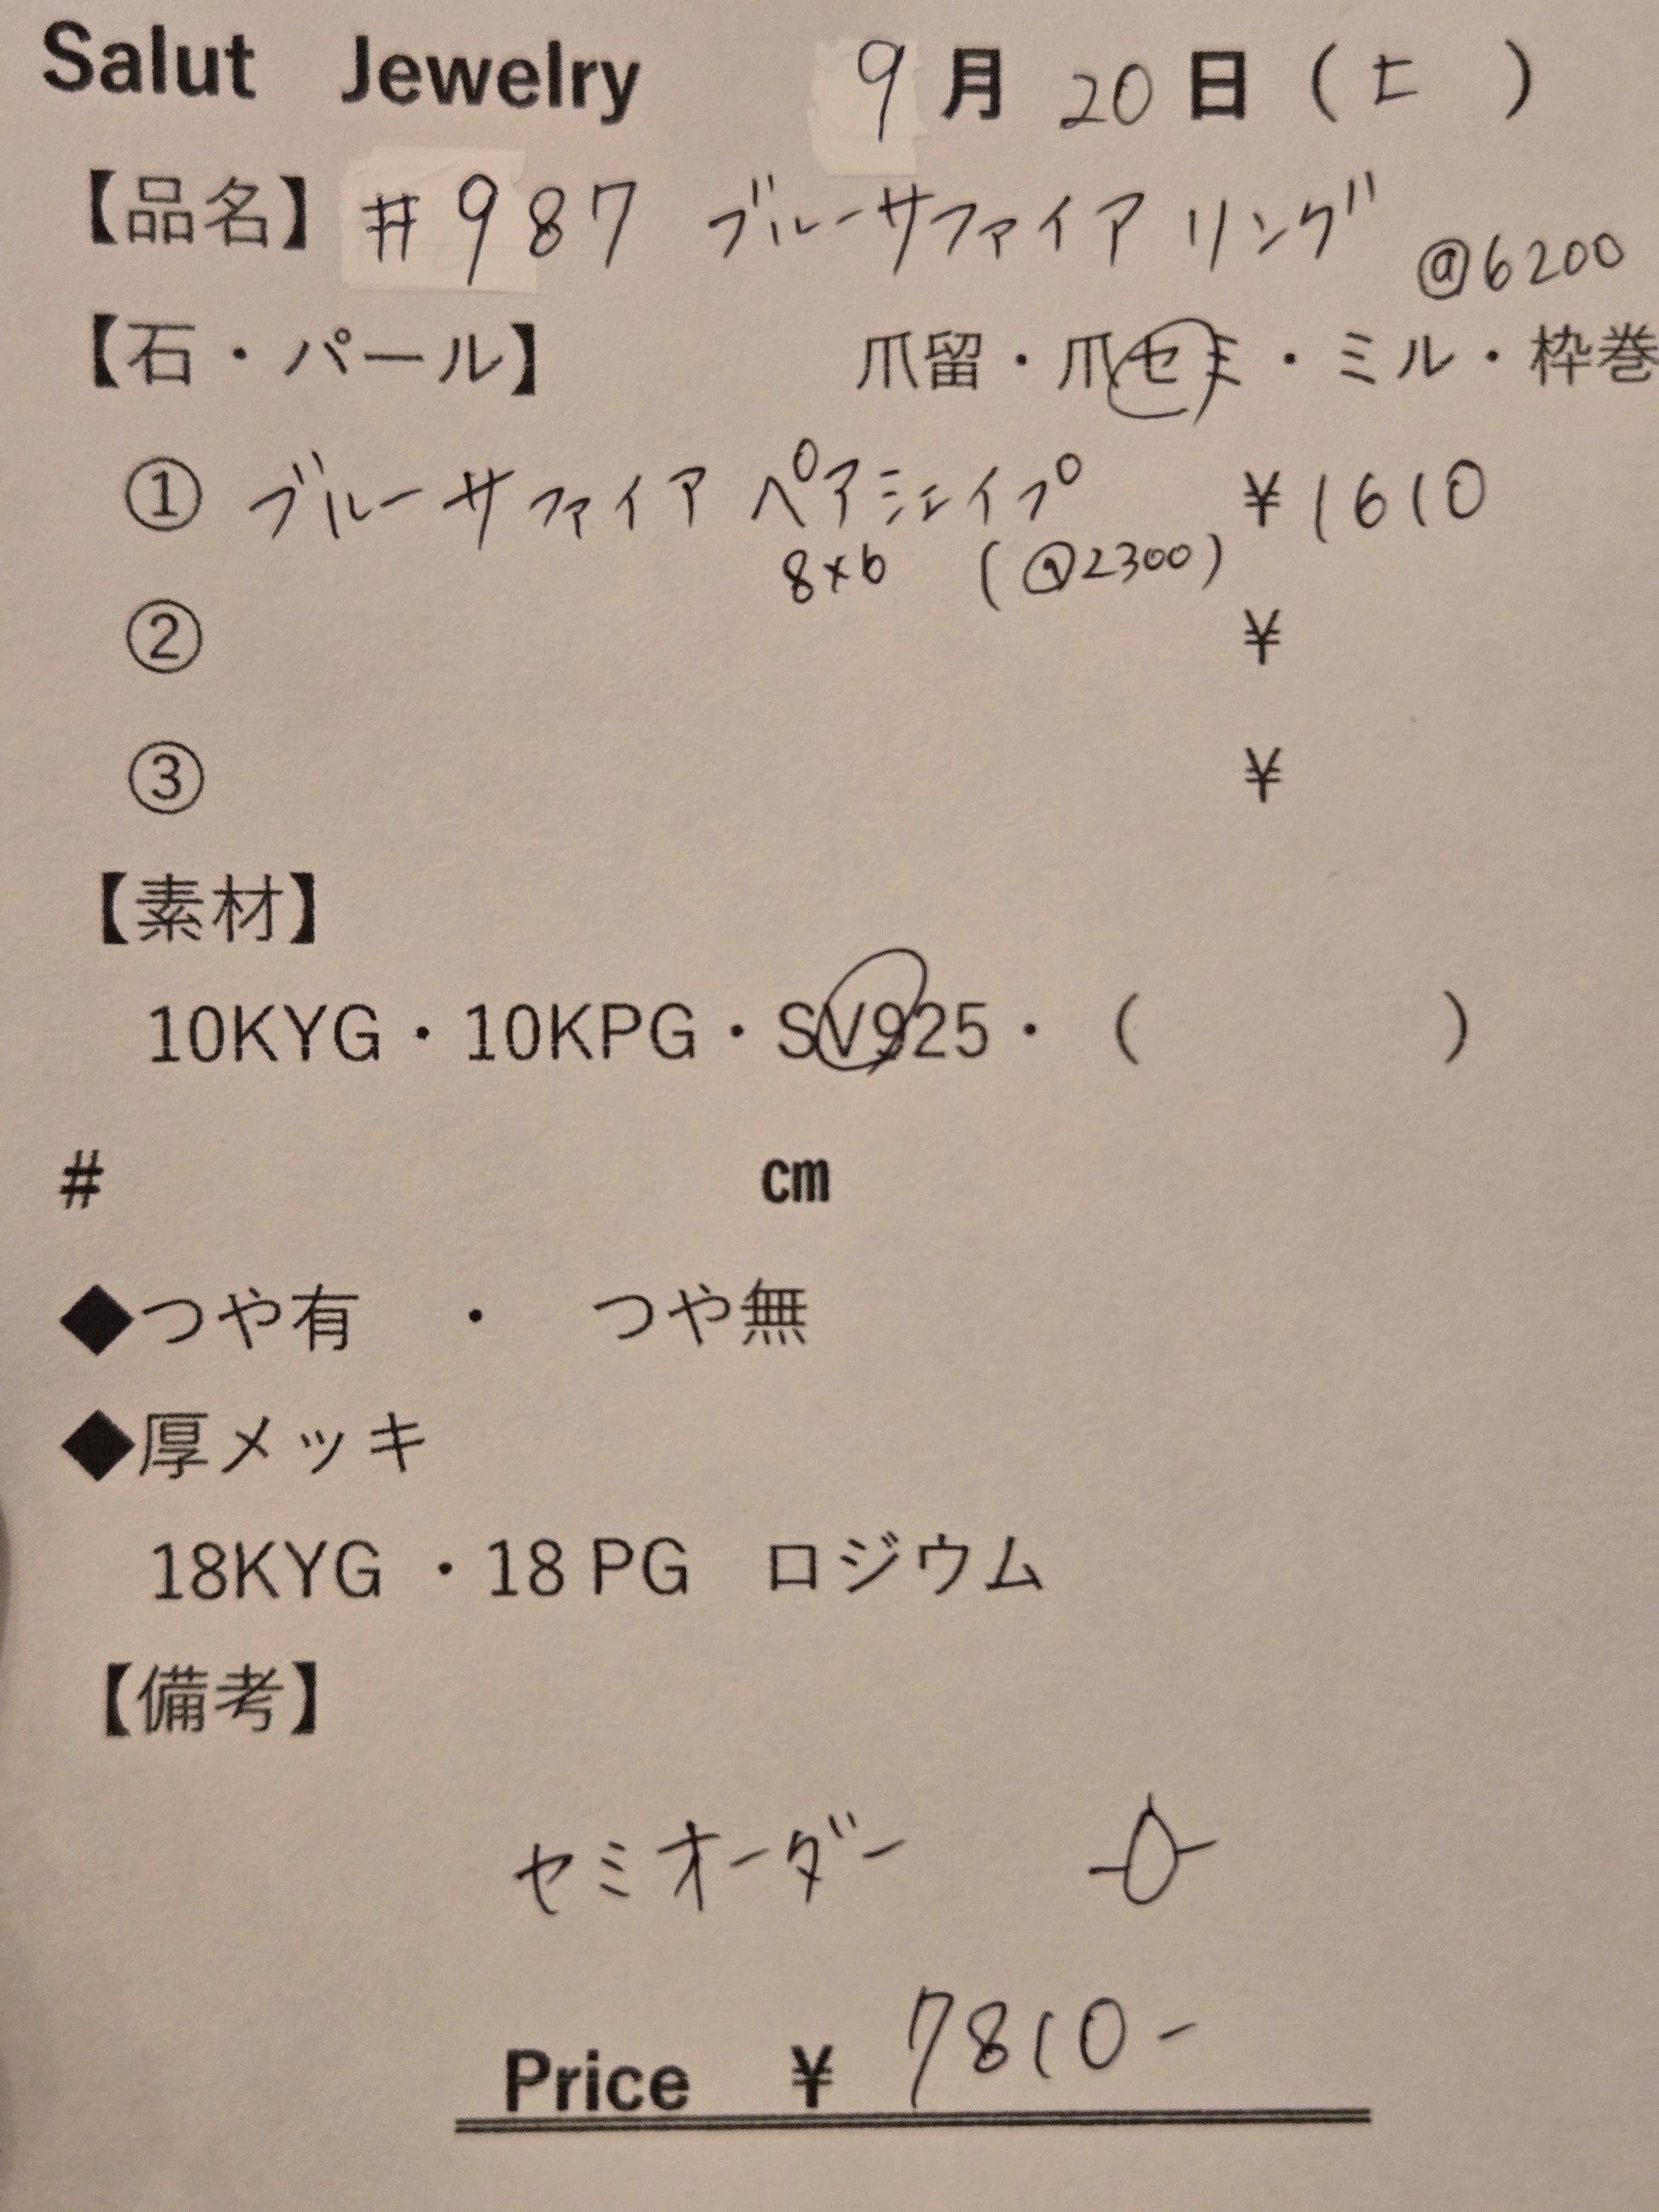 Salut Jewelry 9月20日(土 )
【品名】#987 ブルーサファイア リング
@6200
【石・パール】 爪留・爪セミ・ミル・枠巻
① ブルーサファイア ペアシェイプ ¥1610
8×6 (@2300)
② ¥
③ ¥
【素材】
10KYG・10KPG・SV925・( )
# cm
◆つや有 ・ つや無
◆厚メッキ
18KYG ・18 PG ロジウム
【備考】
セミオーダー
Price ¥ 7810-